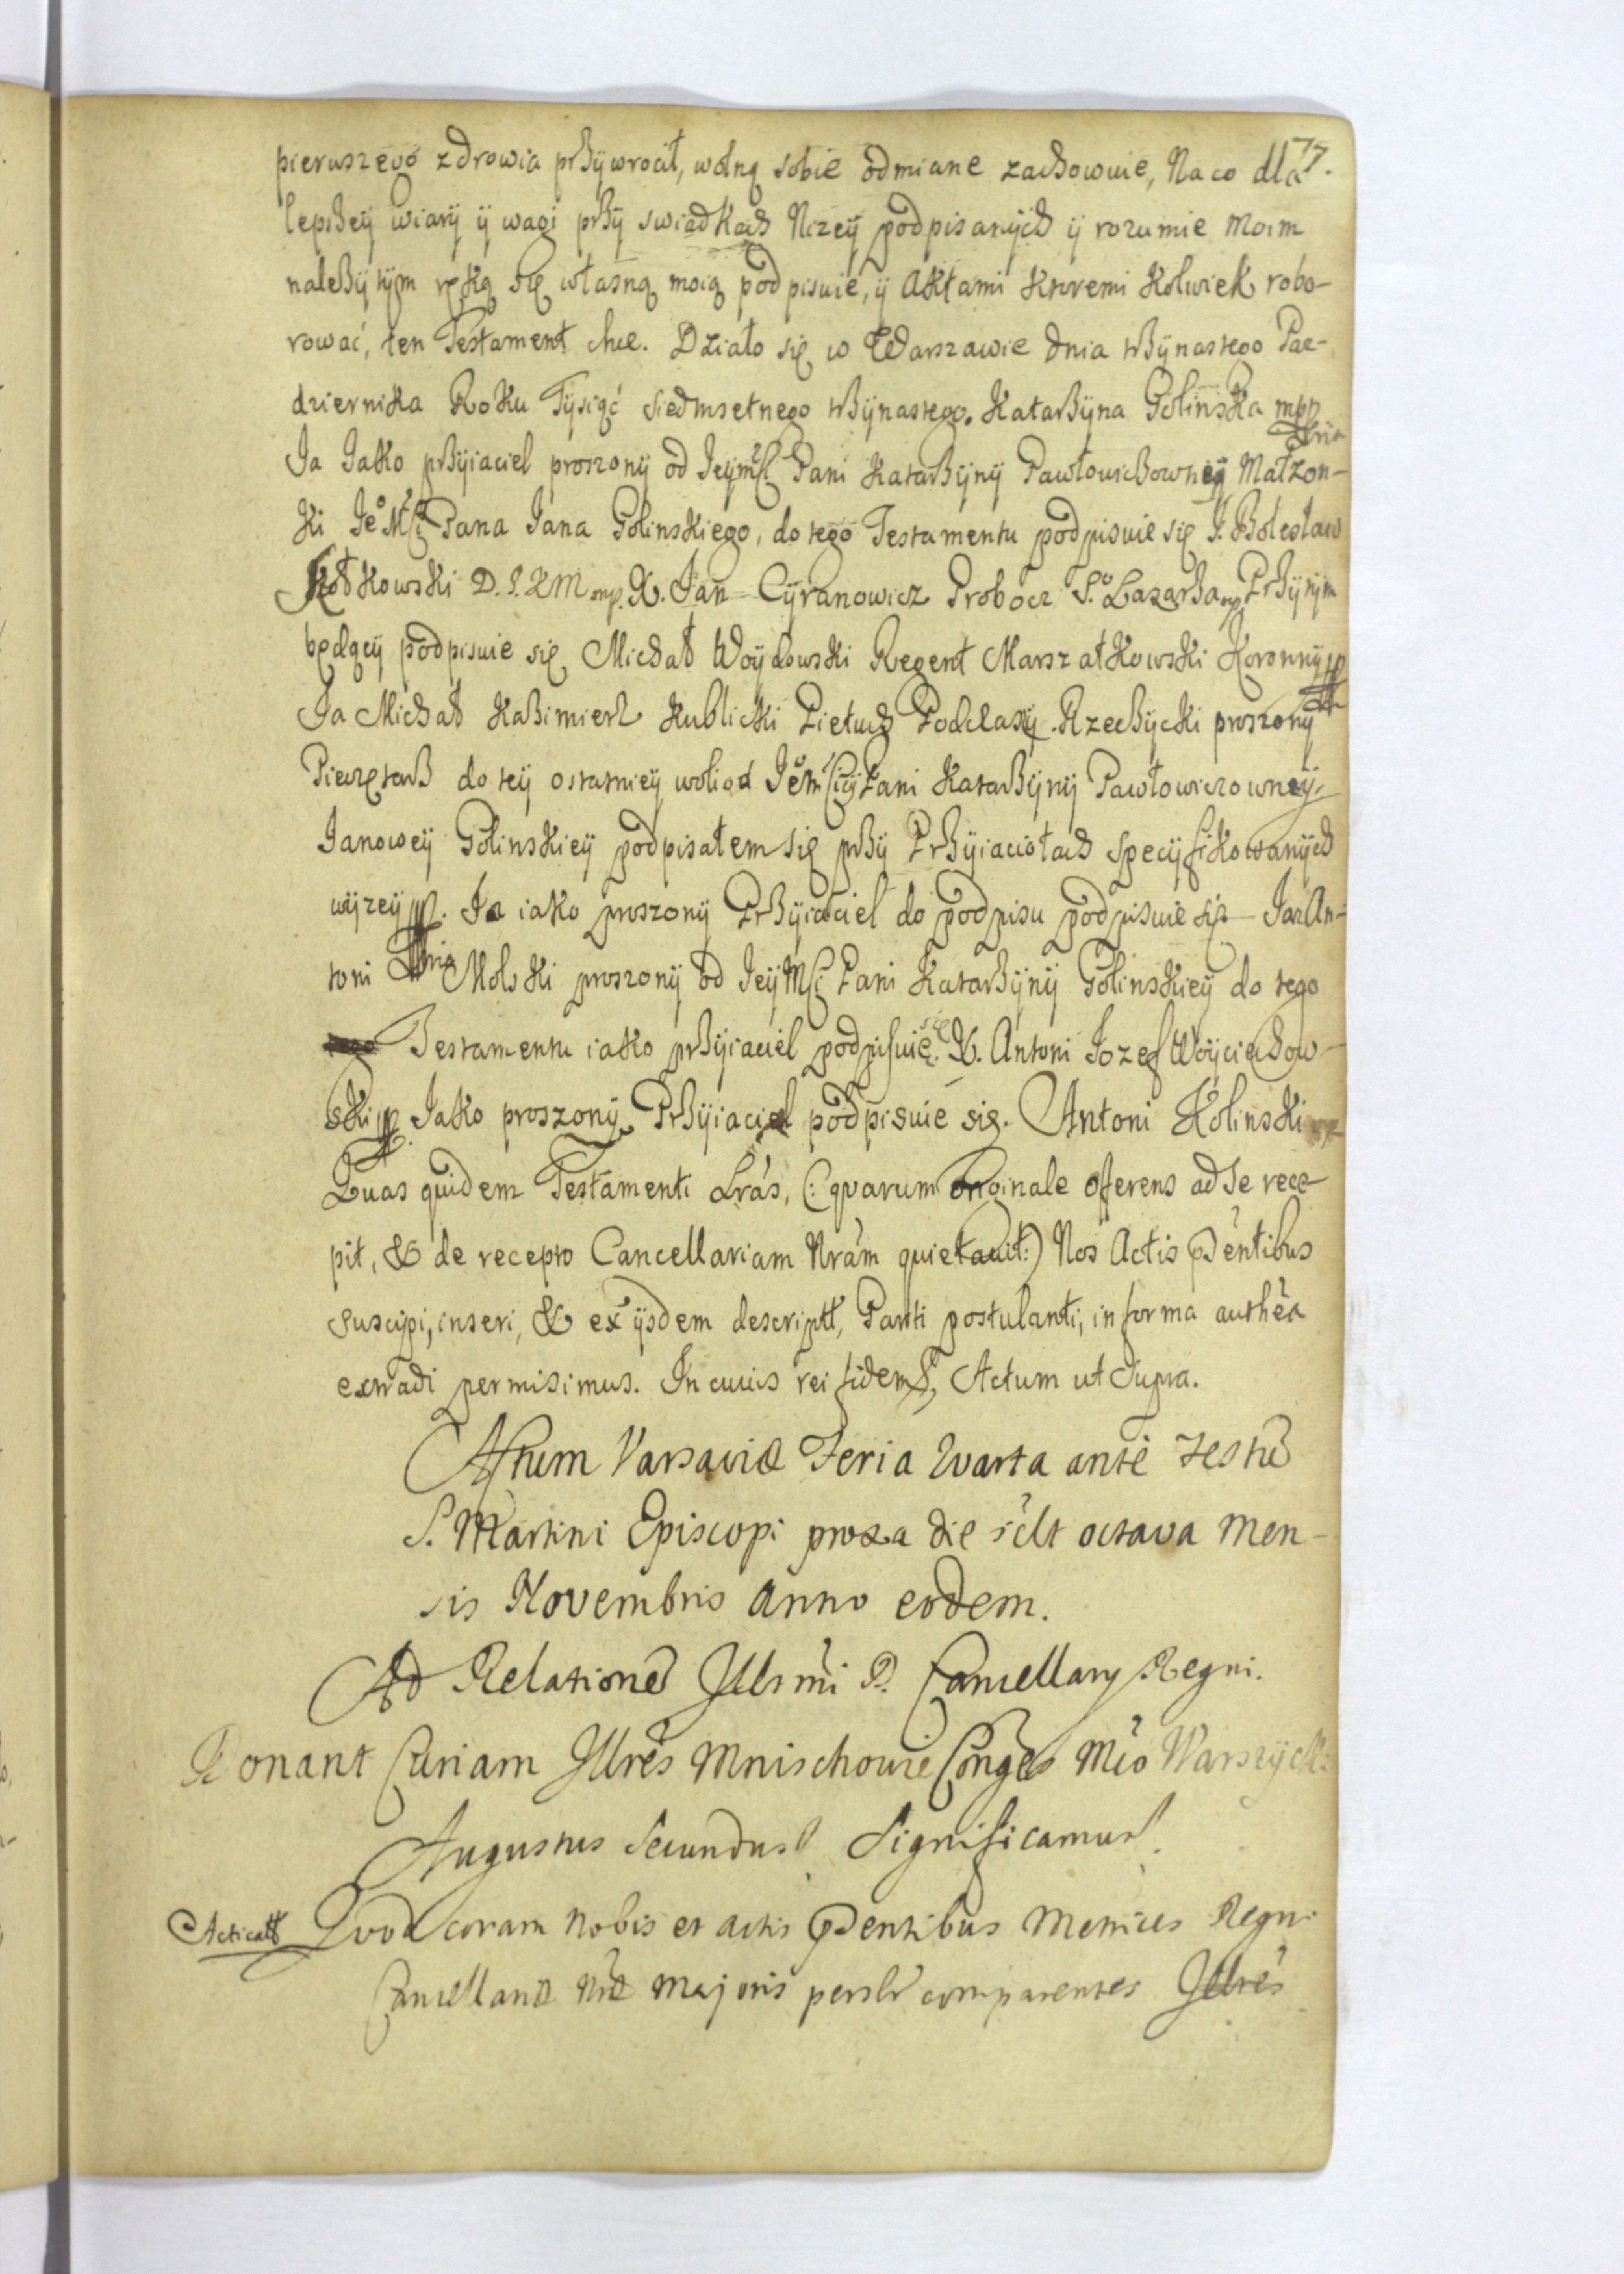 77.
pieruszego zdrowia przÿwrocił, wolną sobie odmiane zachowuie, Na co dla
lepszeÿ wiarÿ ÿ wagi przÿ swiadkach Nizeÿ podpisanÿch ÿ rozumie moim
należÿtÿm ręką się własną moią podpisuie, ÿ Aktami ktoremi kolwiek robo-
rować, ten Testament chce. Działo się w Warszawie dnia trzÿnastego Paz-
dziernika Roku Tÿsiąć siedmsetnego trzÿnastego. Katarzÿna Golinska mpp
Ia Iako przÿiaciel proszonÿ od Ieÿmści Pani Katarzÿnÿ Pawłowiczowneÿ Małzon-
ki Ie Mści Pana Iana Golinskiego, do tego Testamentu podpisuie się J. Bolesław
Kołkowski D.J.K.M mp. X. Ian Cÿranowicz Probosz S. Łazarza mp. Przÿ tÿm
będącÿ podpisuie się Michał Woÿdowski Regent Marszałkowski Koronnÿ mp
Ia Michał Kazimierz Kublicki Pietuch Podczaszÿ Rzeczÿcki proszonÿ
Pieczętarz do teÿ ostatnieÿ woli od IeMściÿ Pani Katarzÿnÿ Pawłowiczowneÿ
Ianoweÿ Golinskieÿ podpisałem się przÿ Przÿiaciołach specÿfikowanÿch
wÿzeÿ mp. Ia iako proszonÿ Przÿiaciel do podpisu podpisuie się Ian An-
toni Molski proszonÿ od IeÿMści Pani Katarzÿnÿ Golinskieÿ do tego
Testamentu iako przÿiaciel podpisuie się. X. Antoni Iozef Woÿciechow-
ski mp Iako proszonÿ Przÿiaciel podpisuie się. Antoni Kolinski mp
Quas quidem Testamenti Lrás, (: quarum originale oferens ad se rece-
pit, & de recepto Cancellariam Nram quietavit:) Nos Actis pñtibus
suscipi, inseri, & ex ijsdem descriptt, Parti postulanti, in forma authēa
extradi permisimus. In cuius rei fidem &, Actum ut supra.
Actum Varsaviæ Feria Quarta ante Festū
S. Martini Episcopi proxa die sclt octava Men-
sis Novembris Anno eodem.
Ad Relationē Illrmi D. Cancellarÿ Regni.
Donant Curiam Illres Mnischowie Conges Mco Warszÿck:
Augustus Secundus &. Significamus &.
Acticatt Quod coram Nobis et actis pñtibus Metrices Regni
Cancellariæ Nræ Majoris persltr comparentes Illres